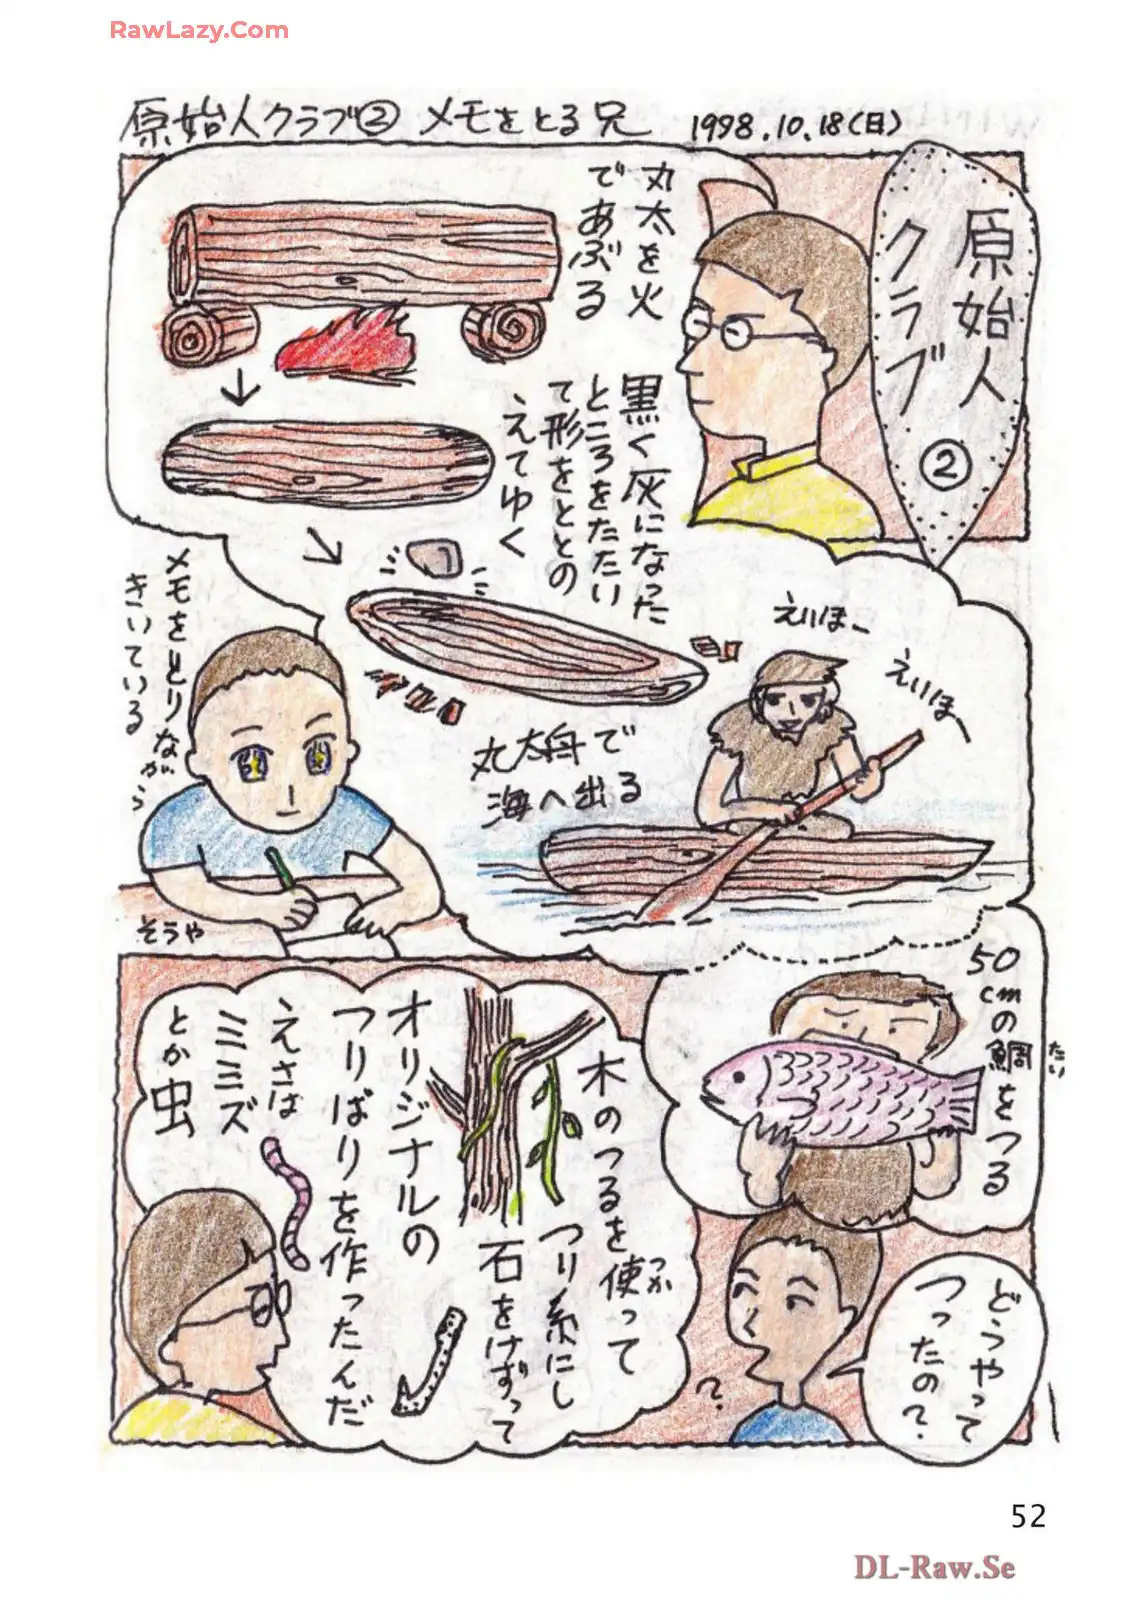 RawLazy.Com
原始人クラブ② メモをとる兄 1998.10.18(日)
原始人
クラブ
②
丸太を火
であぶる
黒く灰になった
ところをたたい
て形をととの
えてゆく
メモをとりながら
きいている
そうや
丸太舟で
海へ出る
えいほー
えいほー
50cmの鯛をつる
たい
どうやって
つったの?
?
木のつるを使って
つか
つり糸にし
石をけずって
オリジナルの
つりばりを作ったんだ
えさは
ミミズ
とか虫
52
DL-Raw.Se